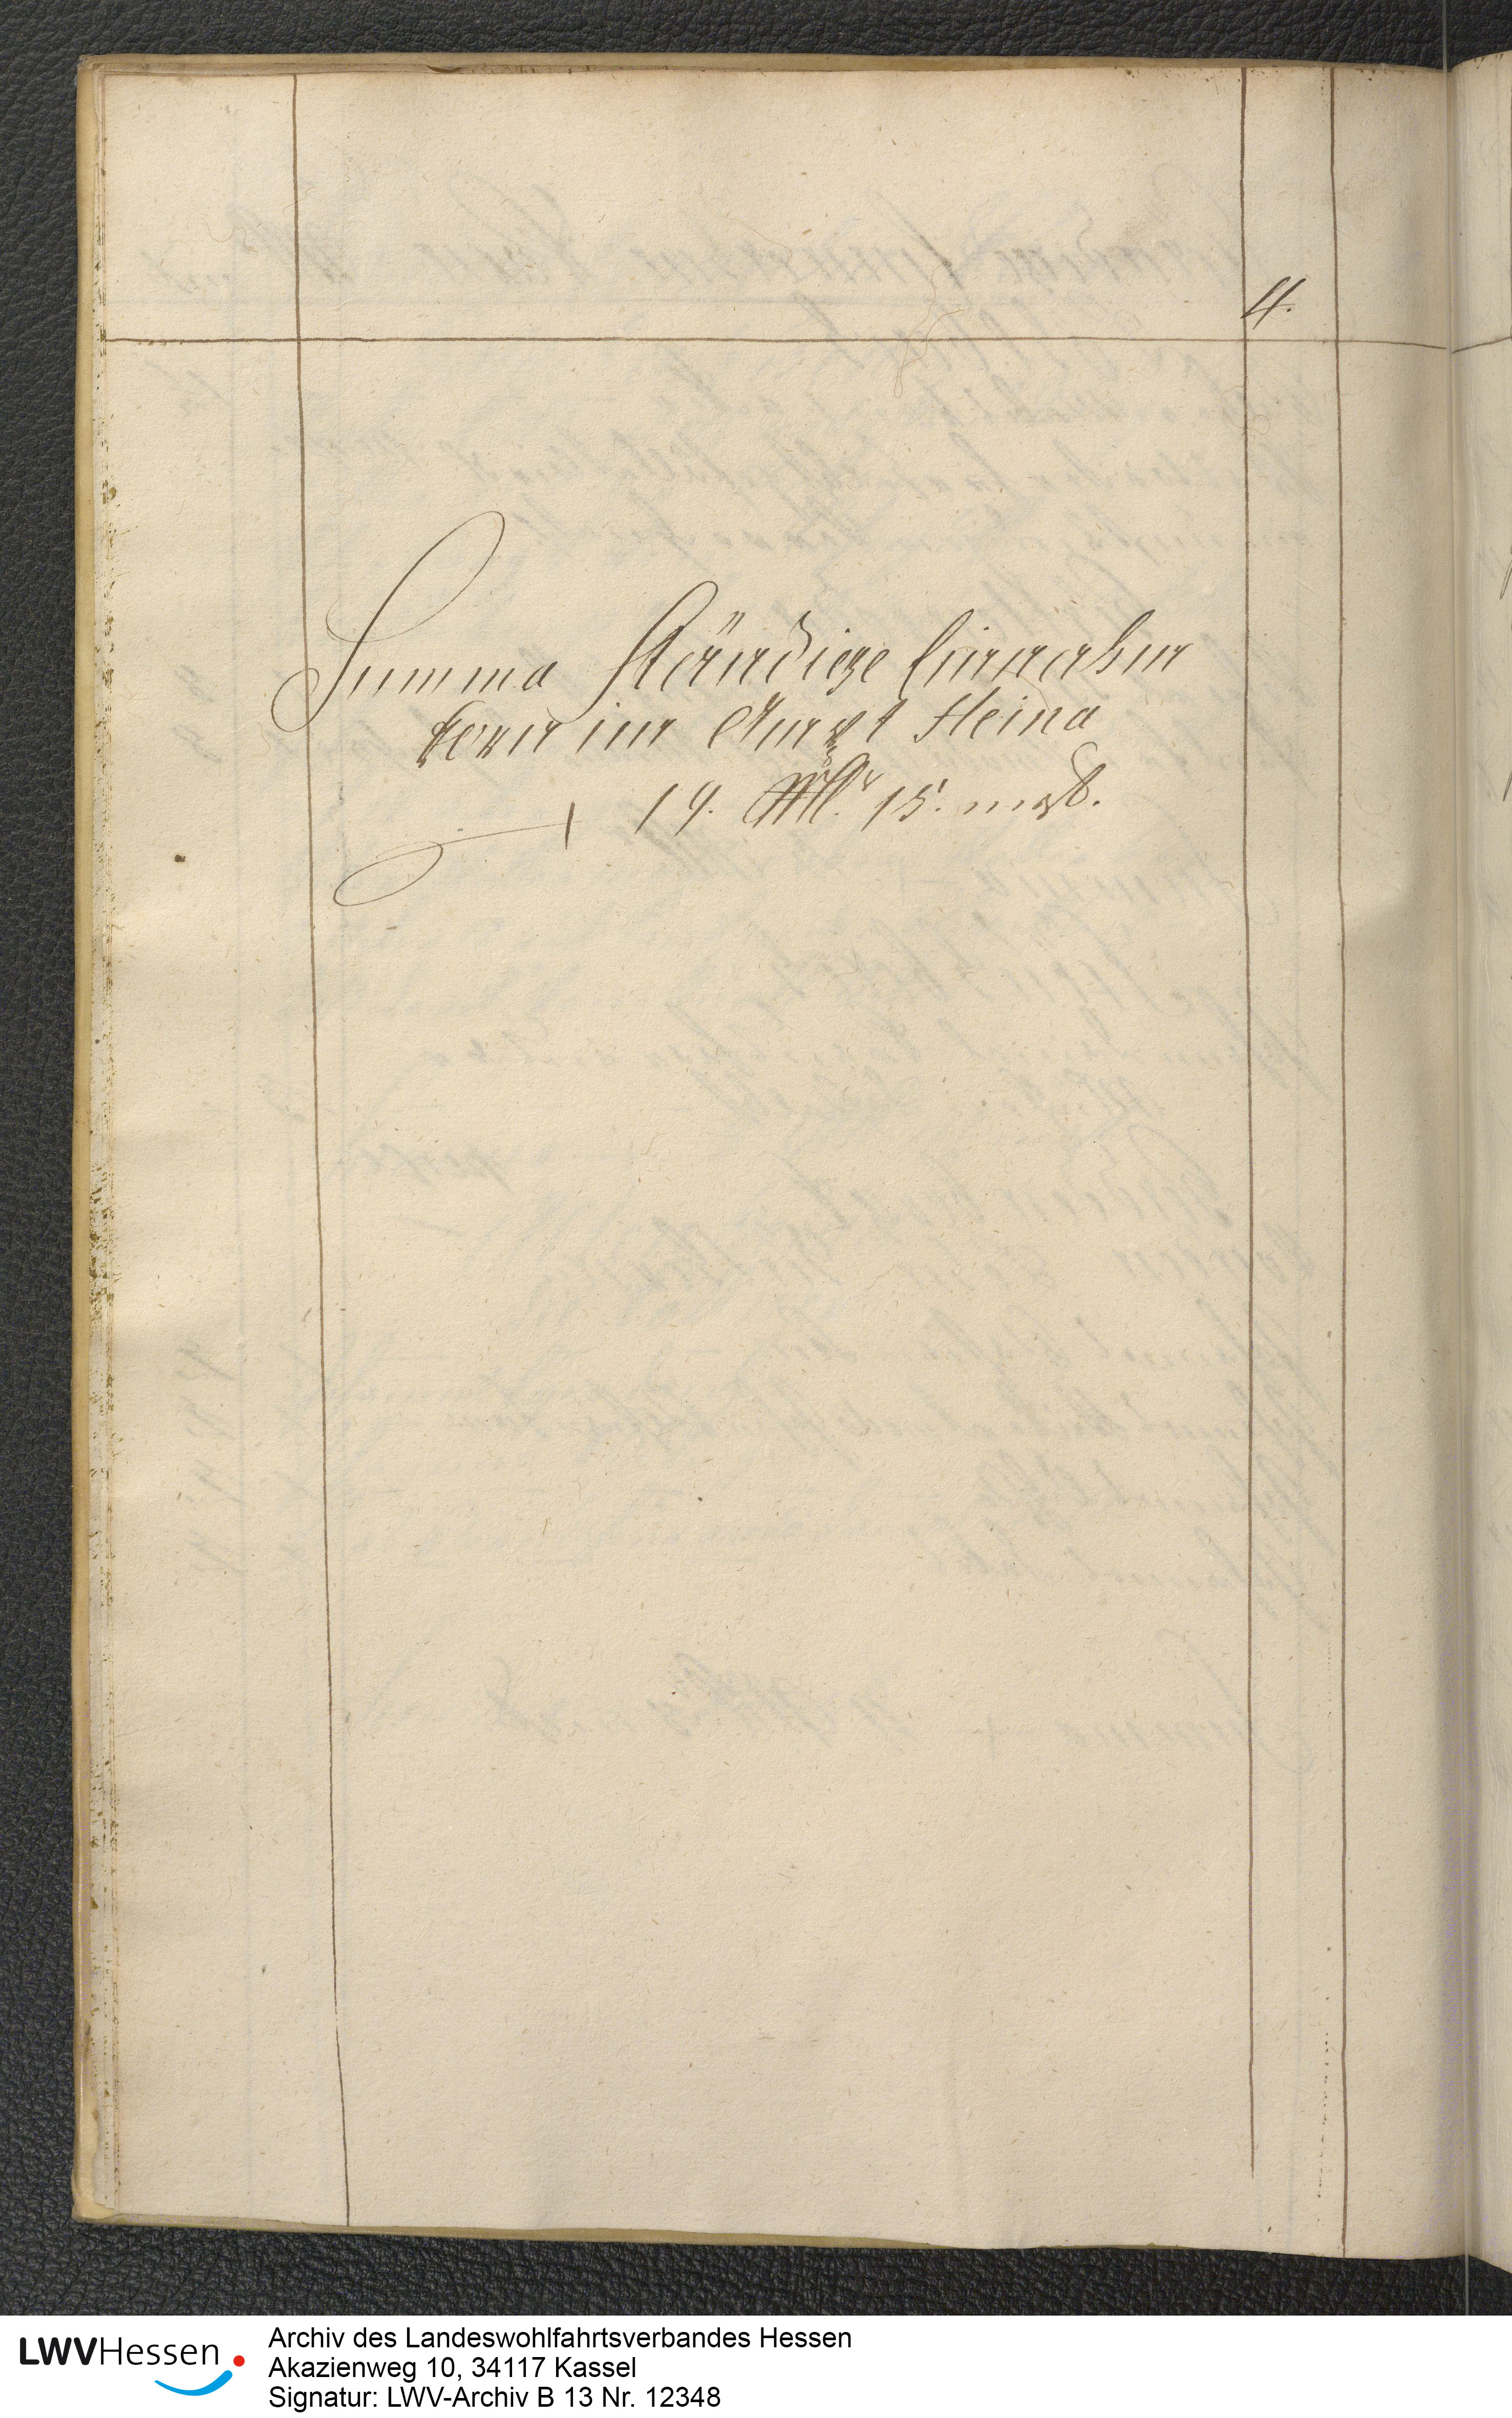 4.
Summa Ständige Einnahm
Korn im Ampt Heina
19. Mlr 15. mß.
LWVHessen
Archiv des Landeswohlfahrtsverbandes Hessen
Akazienweg 10, 34117 Kassel
Signatur: LWV-Archiv B 13 Nr. 12348